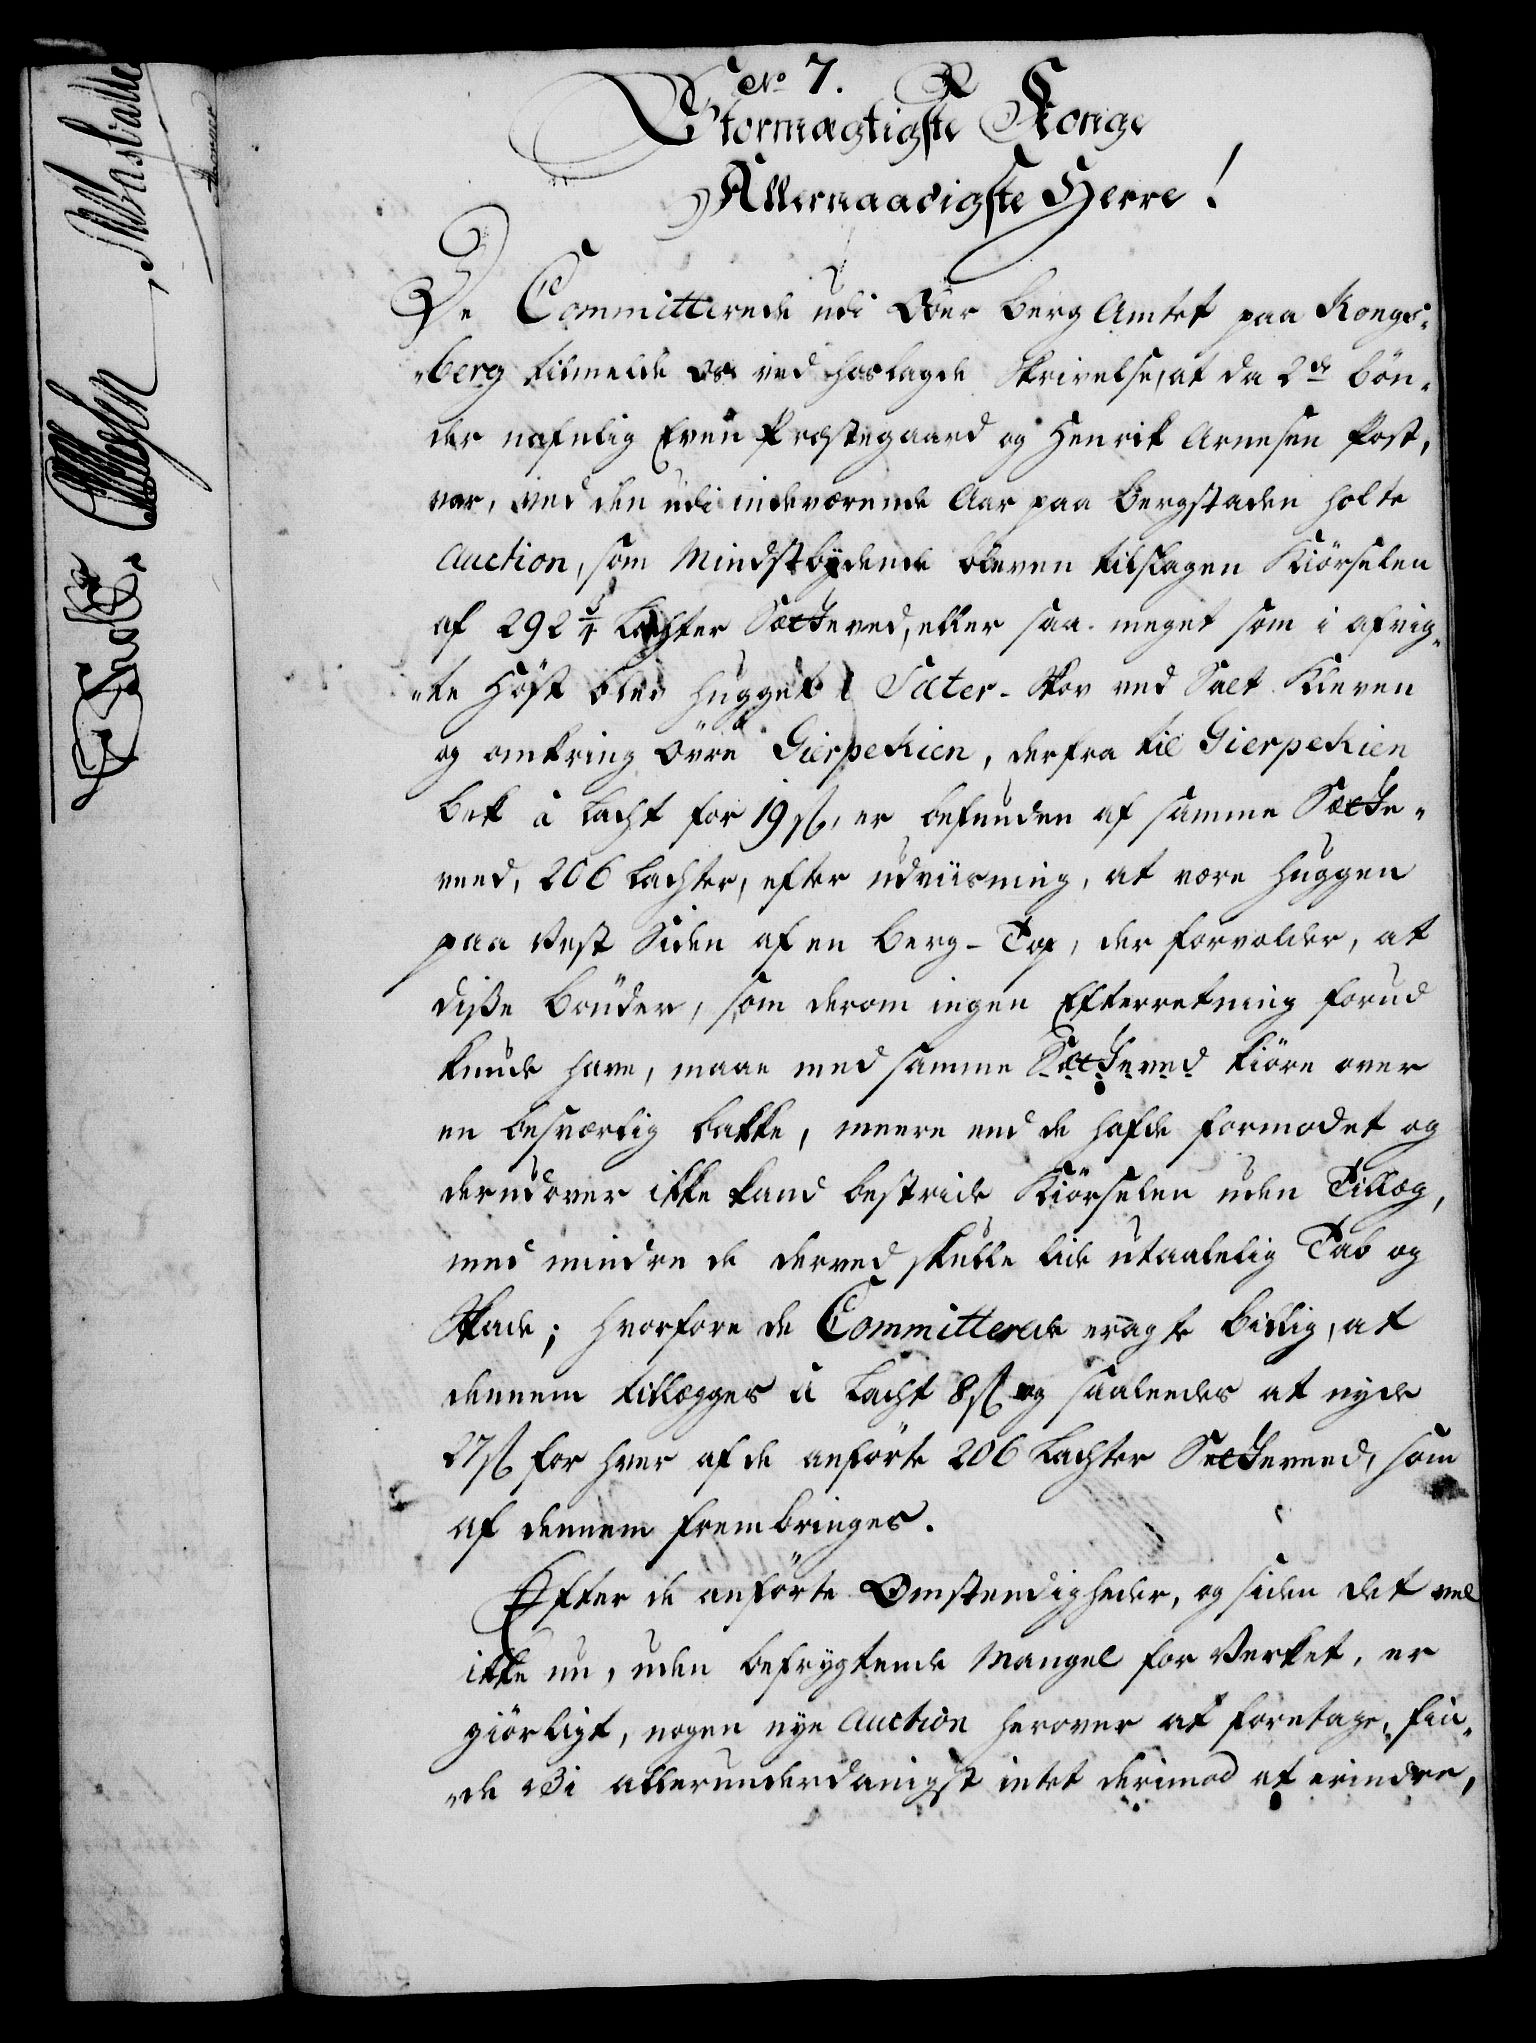 No 7.
Stormægtigste Konge
Allernaadigste Herre!
De Committerede udi Ober Berg Amtet paa Kongs-
berg tilmelde os ved hoslagde Skrivelse, at da 2de Bøn-
der nafnlig Even Præstegaard og Henrik Arnesen Kost,
var, ved den udi indeværende Aar paa Bergstaden holte
Auction, som Mindstbydende bleven tilslagen Kiörselen
af 292 3/4 Lachter Sætteved, eller saa meget som i afvig-
te Höst blev hugget i Sæter-Skov ved Salt Kleven
og omkring Övre Gierpekien, derfra til Gierpekien
Bek à Lacht for 19 ß, er befunden af samme Sætte-
veed, 206 Lachter, efter udviisning, at være huggen
paa Vest Siden af en Berg-Top, der forvolder, at
diße Bönder, som derom ingen Efterretning forud
kunde have, maae med samme Sætteved kiöre over
en besværlig Bakke, meere end de hafde formodet og
derudover ikke kand bestride Kiörselen uden Tillæg,
med mindre de derved skulle lide utaalelig Tab og
Skade; hvorfore de Committerede eragte billig, at
dennem tillægges à Lacht 8 ß og saaleedes at nyde
27 ß for hver af de anförte 206 Lachter Sætteveed, som
af dennem frembringes.
Efter de anförte Omstendigheder, og siden det vel
ikke nu, uden befrygtende Mangel for Verket, er
giörligt, nogen nye Auction herover at foretage, fin-
de Vi allerunderdanigst intet derimod at erindre,